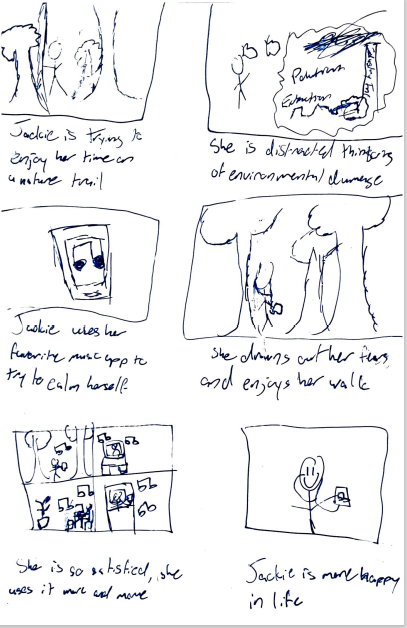 Jackie is trying to
enjoy her time on
a nature trail
Pollution
Extinction
She is distracted thinking
of environmental damage
Jackie uses her
favorite music app to
try to calm herself
She drowns out her fears
and enjoys her walk
She is so satisfied, she
uses it more and more
Jackie is more happy
in life